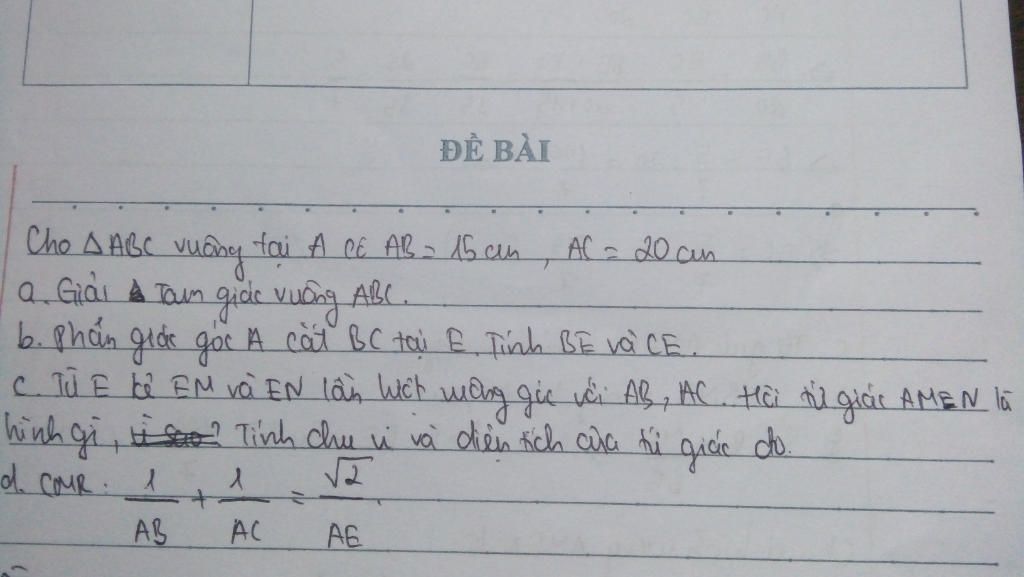 ĐỀ BÀI
Cho △ABC vuông tại A có AB = 15 cm, AC = 20 cm
a. Giải Tam giác vuông ABC.
b. Phân giác góc A cắt BC tại E. Tính BE và CE.
c. Từ E kẻ EM và EN lần lượt vuông góc với AB, AC. Hỏi tứ giác AMEN là
hình gì, vì sao? Tính chu vi và diện tích của tứ giác đó.
d. CMR: 1/AB + 1/AC = √2/AE.